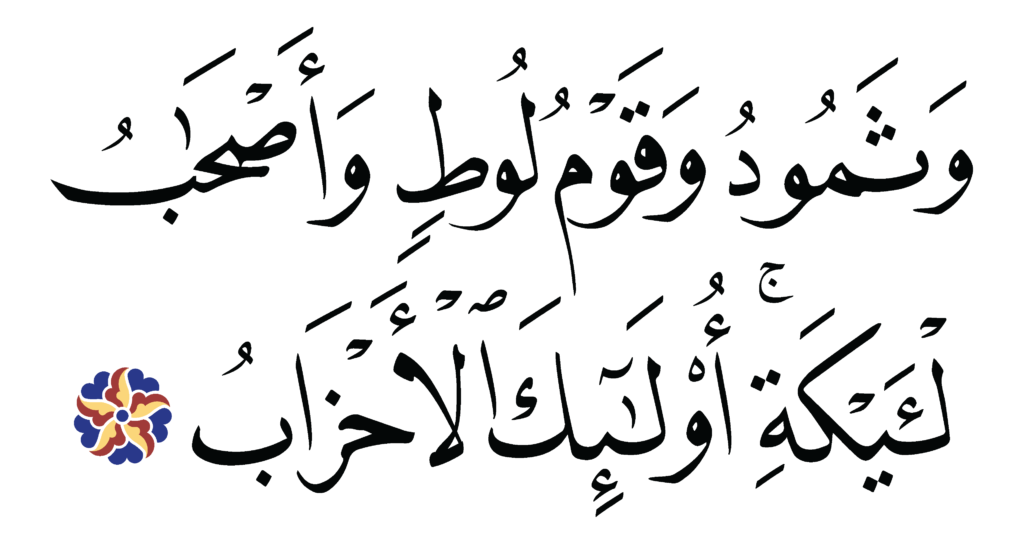 وَثَمُودُ وَقَوْمُ لُوطٍ وَأَصْحَٰبُ
لْـَٔيْكَةِ ۚ أُو۟لَٰٓئِكَ ٱلْأَحْزَابُ